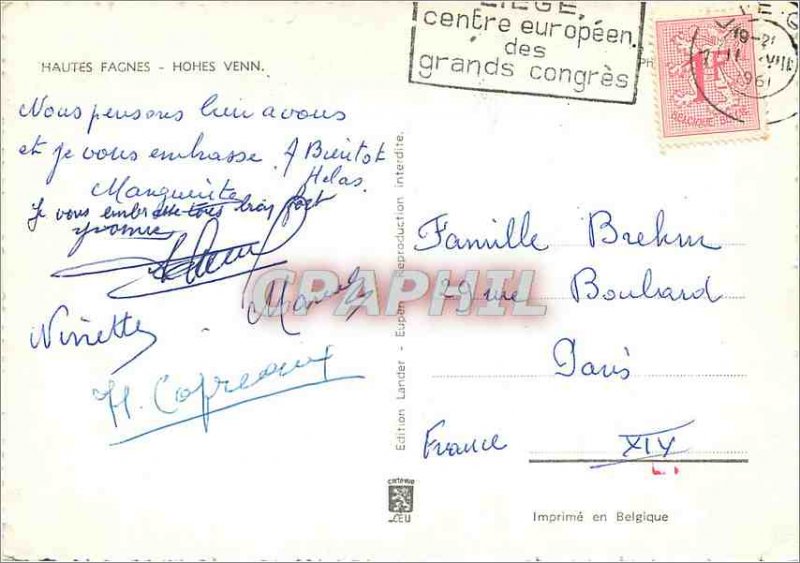 LIEGE,
centre européen
des
grands congrès
19-21
1961
BELGIQUE
1F
HAUTES FAGNES - HOHES VENN.
Nous pensons bien a vous
et je vous embrasse. A Bientot
Helas.
Marguerite
Je vous embrasse tous bien fort
Yvonne
Ninette
Famille Brehin
29 rue Boulard
Paris
France XIV
CPAPHIL
Edition Lander - Eupen Reproduction interdite.
CEU
Imprimé en Belgique